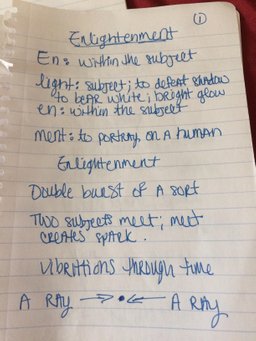 ①
Enlightenment
En: within the subject
light: subject; to defeat shadow
to bear white; bright glow
en: within the subject
ment: to portray on A human
Enlightenment
Double burst of A sort
Two subjects meet; meet
creates spark.
vibrations through time
A RAY → • ← A RAY